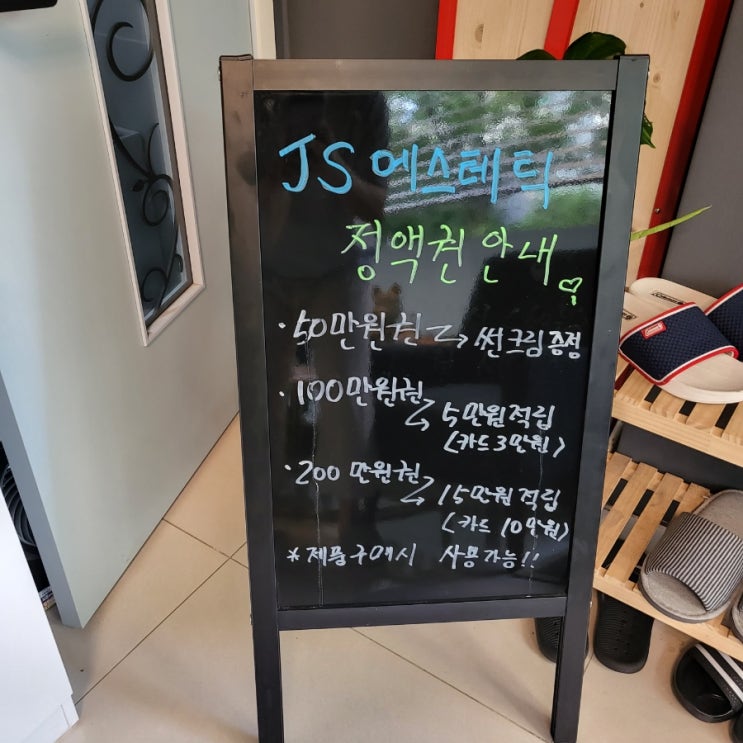 JS 에스테틱
정액권 안내
· 50만원권 → 썬크림 증정
· 100만원권
→ 5만원적립
(카드 3만원)
· 200만원권
→ 15만원적립
(카드 10만원)
* 제품구매시 사용가능!!